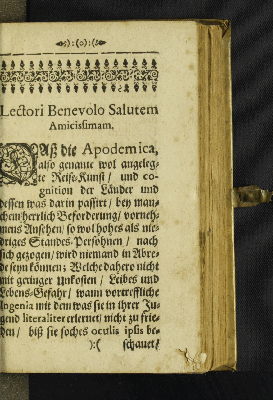 :(o):
Lectori Benevolo Salutem
Amicissimam.
DAß die Apodemica,
also genante wol angeleg-
te Reise-Kunst / und co-
gnition der Länder und
dessen was darin passirt / bey man-
chem herrlich Beforderung / vorneh-
mens Ansehen / so wol hohes als nie-
driges Standes-Persohnen / nach
sich gezogen / wird niemand in Abre-
de seyn können; Welche dahero nicht
mit geringer Unkosten / Leibes und
Lebens-Gefahr / wann vortreffliche
Ingenia mit dem was sie in ihrer Ju-
gend literaliter erlernet / nicht zu frie-
den / biß sie soches oculis ipsis be-
):( schauet /